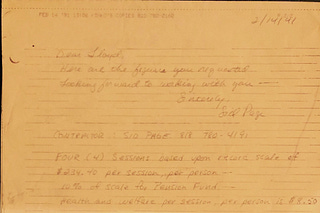 2/14/91
Dear Lloyd,
Here are the figures you requested
Looking forward to working with you —
Sincerely,
Sid Page
CONTRACTOR: SID PAGE 818 780-4191
FOUR (4) Sessions based upon record scale of
per session, per person —
10% of scale for Pension Fund —
Health and welfare per session, per person is